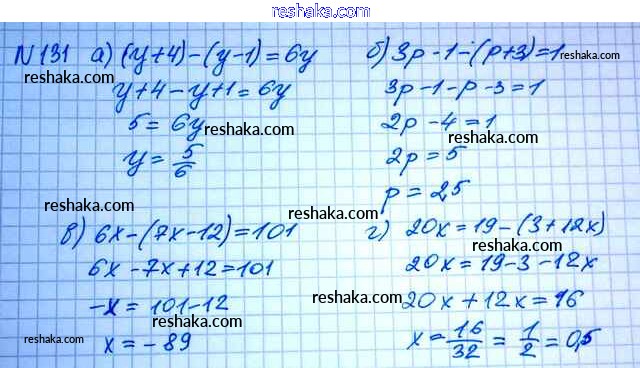 reshaka.com
N131 а) (y+4)-(y-1)=6y
y+4-y+1=6y
5=6y
y=5/6
б) 3p-1-(p+3)=1
3p-1-p-3=1
2p-4=1
2p=5
p=2,5
в) 6x-(7x-12)=101
6x-7x+12=101
-x=101-12
x=-89
г) 20x=19-(3+12x)
20x=19-3-12x
20x+12x=16
x=16/32=1/2=0,5
reshaka.com
reshaka.com
reshaka.com
reshaka.com
reshaka.com
reshaka.com
reshaka.com
reshaka.com
reshaka.com
reshaka.com
reshaka.com
reshaka.com
reshaka.com
reshaka.com